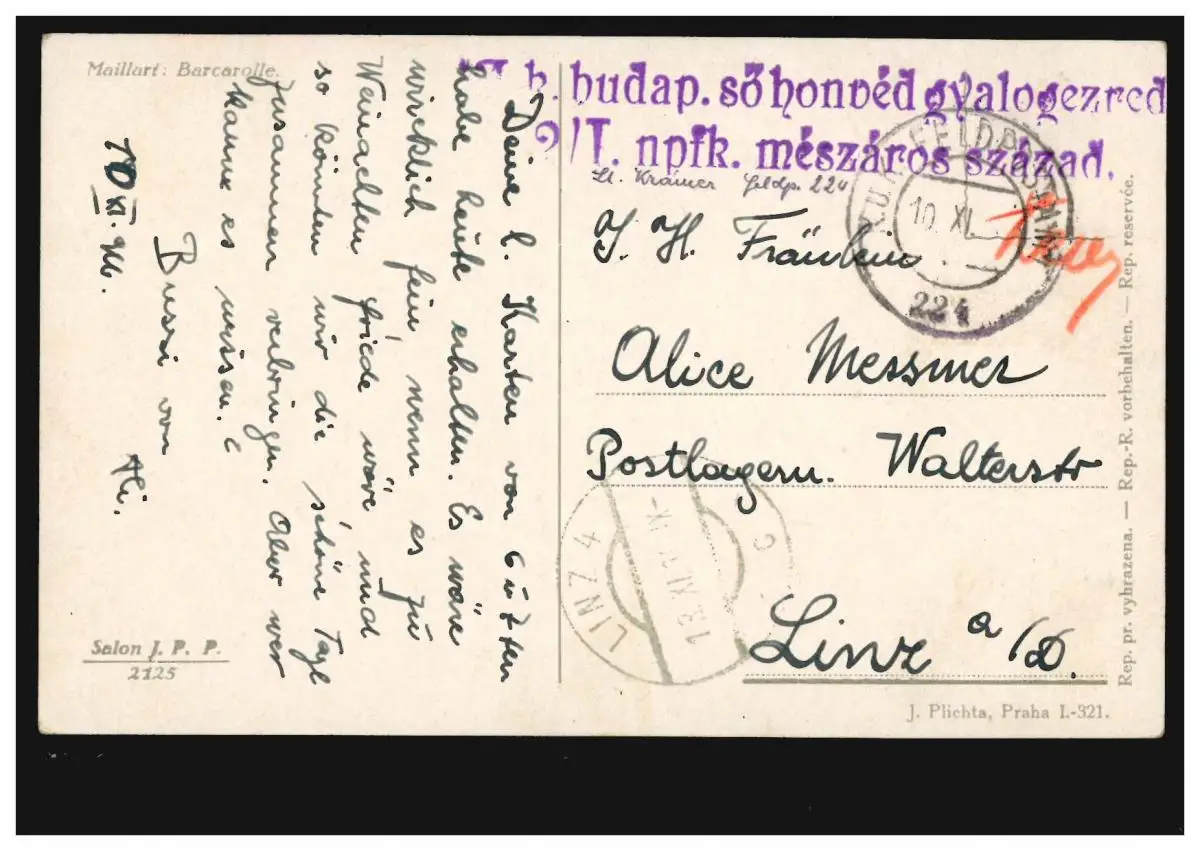 Maillart: Barcarolle.
Deine l. Karten von 6 u 7ten
habe heute erhalten. Es wäre
wircklich fein, wenn es zu
Weinachten friede wäre und
so könnten wir die schöne Tage
zusammen verbringen. Aber wer
kann es wissen.
Bussi von
10 XI. 916.
Salon J. P. P.
2125
h. budap. ső honvéd gyalogezred
/I. npfk. mészáros század.
Lt. Krämer feldp. 224
K.u.K. FELDPOSTAMT
10. XI.
224
I. H. Fräulein
Alice Messmer
Postlagern. Walterstr
LINZ 4
13.XI.
Linz a/D.
J. Plichta, Praha I.-321.
Rep. pr. vyhrazena. — Rep.-R. vorbehalten. — Rep. reservée.